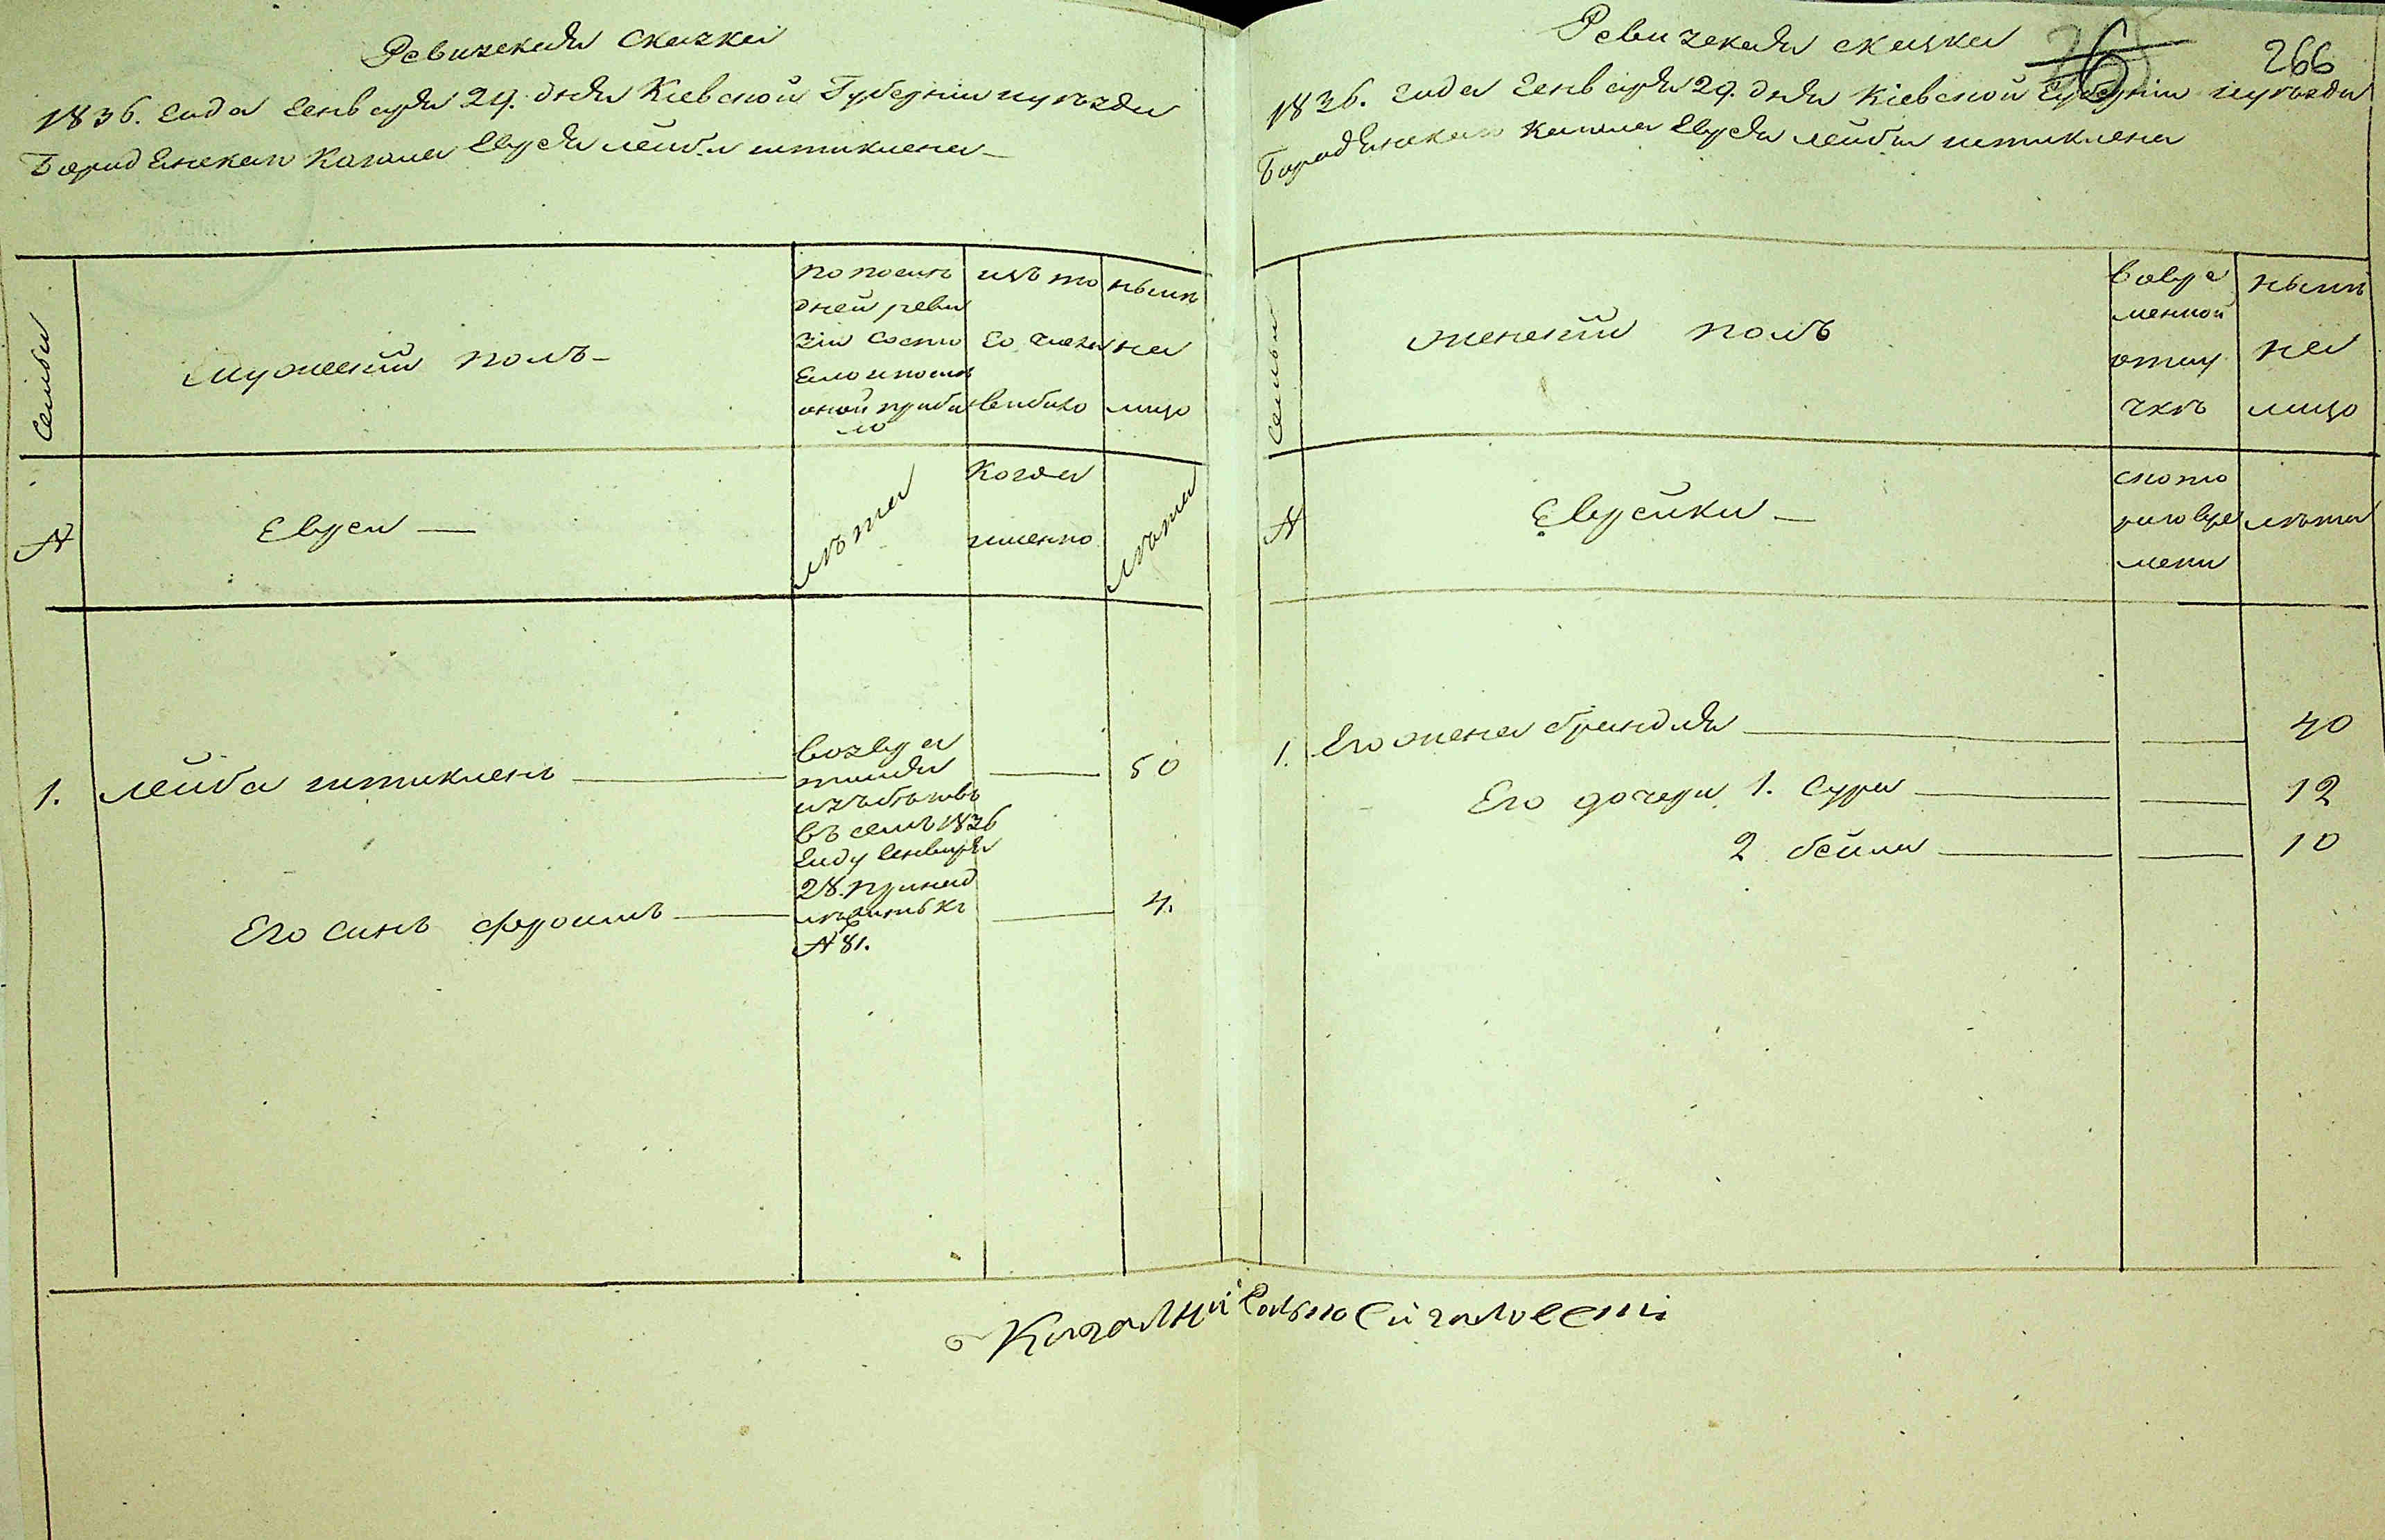 Ревизская сказка
1836. года генваря 29. дня Кіевской Губерніи иуѣзда
Бородянскаго Кагала Еврея лейбы штиклена
Семьи
Мужескій полъ
по послѣ
дней реви
зіи состо
яло и послѣ
оной прибы
ло
изъ то
го числа
выбыло
нынѣ
на
лицо
№
Евреи
лѣта
Когда
именно
лѣта
1. лейба штикленъ
возвра
тился
изъ бѣговъ
въ семъ 1836
году генваря
28. принад
къ
№ 81.
50
Его синъ фроимъ
4.
Ревизская сказка
266
1836. года генваря 29. дня Кіевской Губерніи иуѣзда
Бородянскаго Кагала Еврея лейбы штиклена
Семьи
женскій полъ
вовре
менной
отлу
чкѣ
нынѣ
на
лицо
№
Еврейки
ското
раго вре
мени
лѣта
1. Его жена брандля 40
Его дочери 1. Сура 12
2 бейла 10
Кагалній